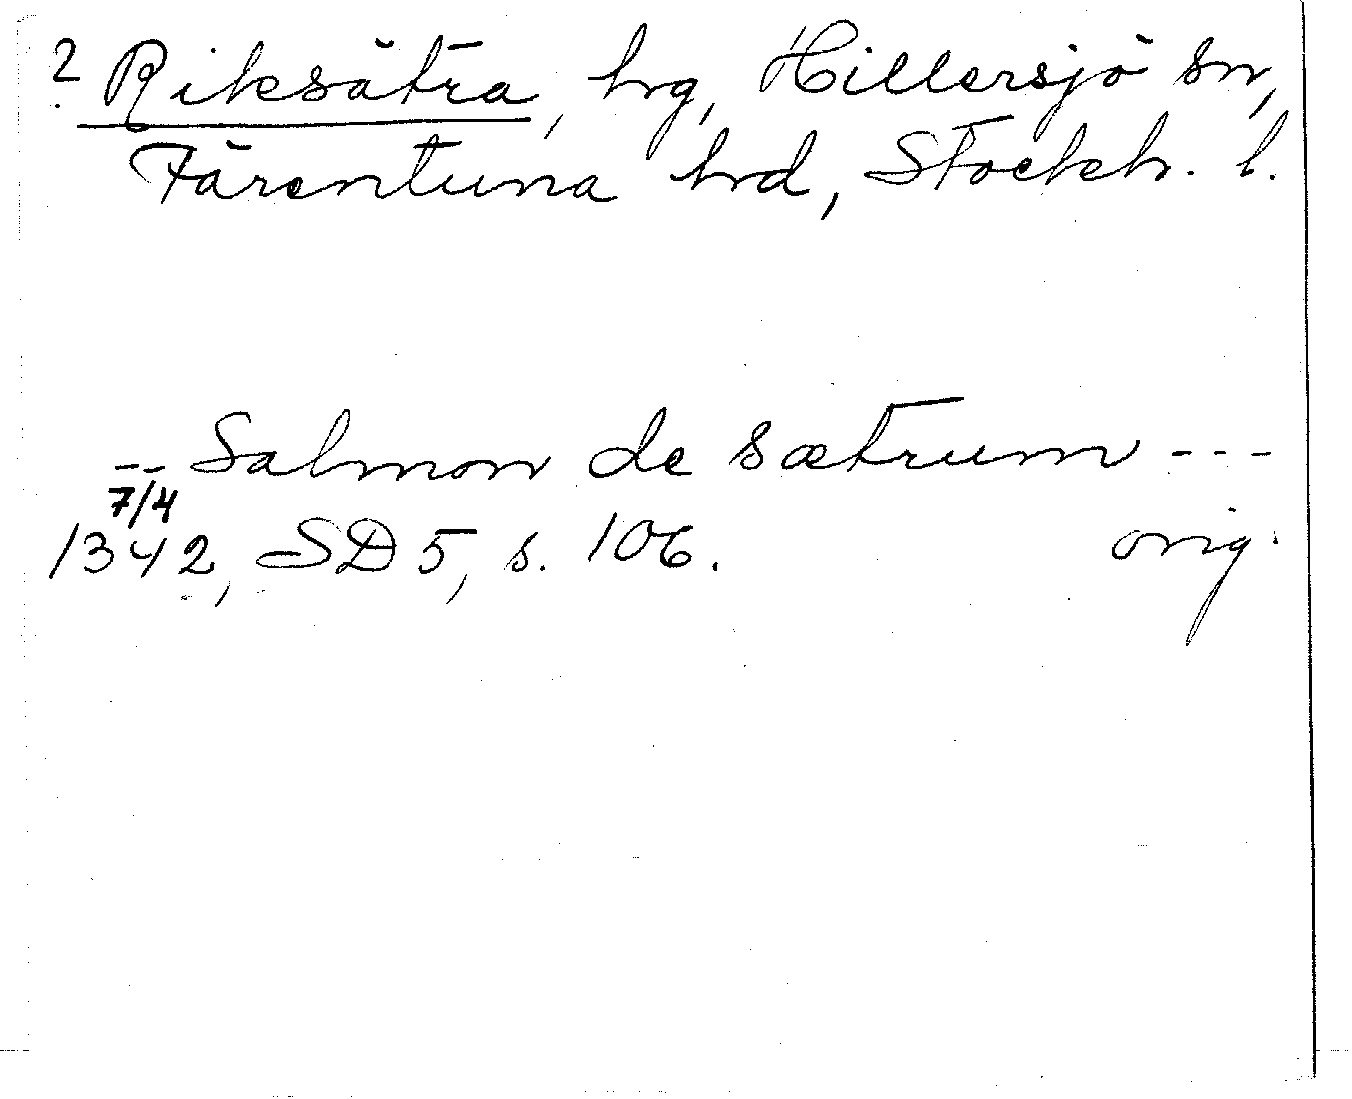 ? Riksätra, hrg, Hillersjö sn,
Färentuna hrd, Stockh. l.
-- Salmon de sætrum ---
7/4
1342, SD 5, s. 106. orig.